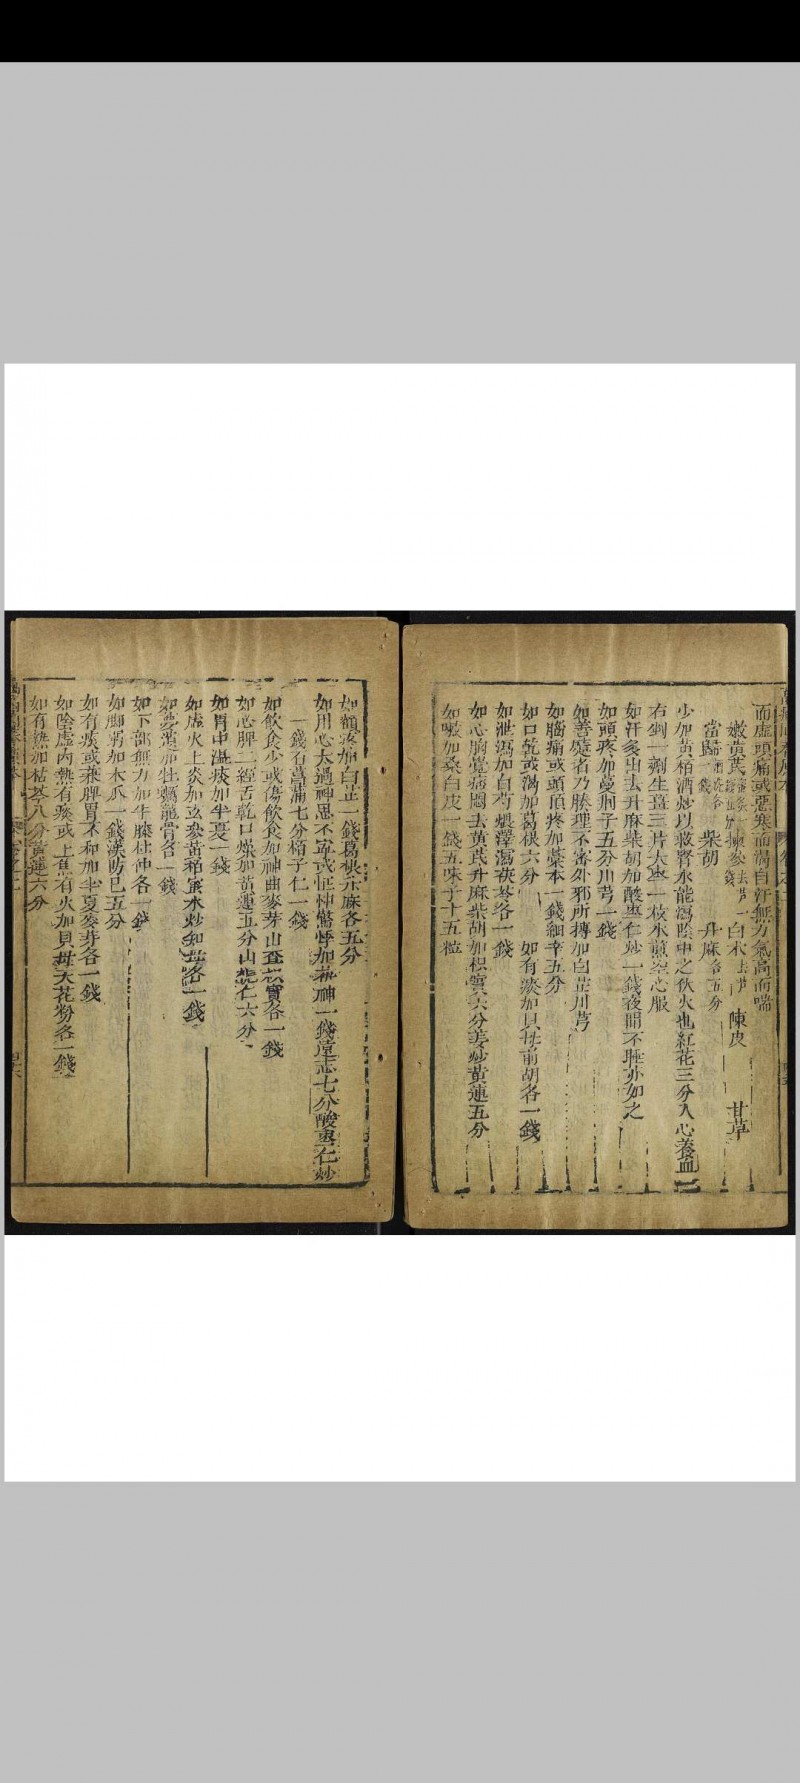 而虛頭痛或惡寒而渴自汗無力氣高而喘
嫩黃芪 人參去芦 白朮去芦 陳皮 甘草
當歸 柴胡 升麻各五分
少加黃栢酒炒以救腎水能瀉陰中之伏火也紅花三分入心養血
右剉一劑生薑三片大棗一枚水煎空心服
如汗多出去升麻柴胡加酸棗仁炒一錢夜間不睡亦如之
如頭疼加蔓荊子五分川芎一錢
如善嚏者乃腠理不密外邪所搏加白芷川芎
如腦痛或頭頂疼加藁本一錢細辛五分
如口乾或渴加葛根六分 如有痰加貝母前胡各一錢
如泄瀉加白芍煨澤瀉茯苓各一錢
如心胸覺痞悶去黃芪升麻柴胡加枳實六分姜炒黃連五分
如嗽加桑白皮一錢五味子十五粒
如額疼加白芷一錢葛根升麻各五分
如用心太過神思不寧或怔忡驚悸加茯神一錢遠志七分酸棗仁炒
一錢石菖蒲七分栢子仁一錢
如飲食少或傷飲食加神曲麥芽山查枳實各一錢
如心脾二經舌乾口燥加黃連五分山梔仁六分
如胃中濕痰加半夏一錢
如虛火上炎加玄參黃栢蜜水炒知母各一錢
如夢遺加牡蠣龍骨各一錢
如下部無力加牛膝杜仲各一錢
如脚弱加木瓜一錢漢防已五分
如有痰或兼脾胃不和加半夏麥芽各一錢
如陰虛內熱有痰或上焦有火加貝母天花粉各一錢
如有熱加枯芩八分黃連六分